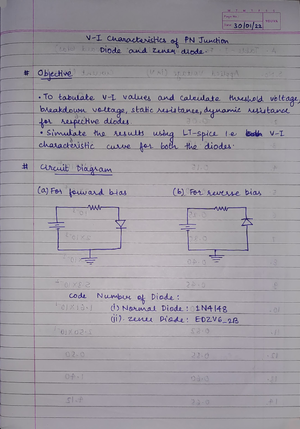 30/01/22
V-I Characteristics of PN Junction
Diode and Zener diode.
# Objective
• To tabulate V-I values and calculate threshold voltage,
breakdown voltage, static resistance, dynamic resistance
for respective diodes
• Simulate the results using LT-spice i.e V-I
characteristic curve for both the diodes.
# Circuit Diagram
(a) For forward bias (b) For reverse bias
Code Number of Diode:
(i) Normal Diode: 1N4148
(ii). Zener Diode: EDZV6_2B